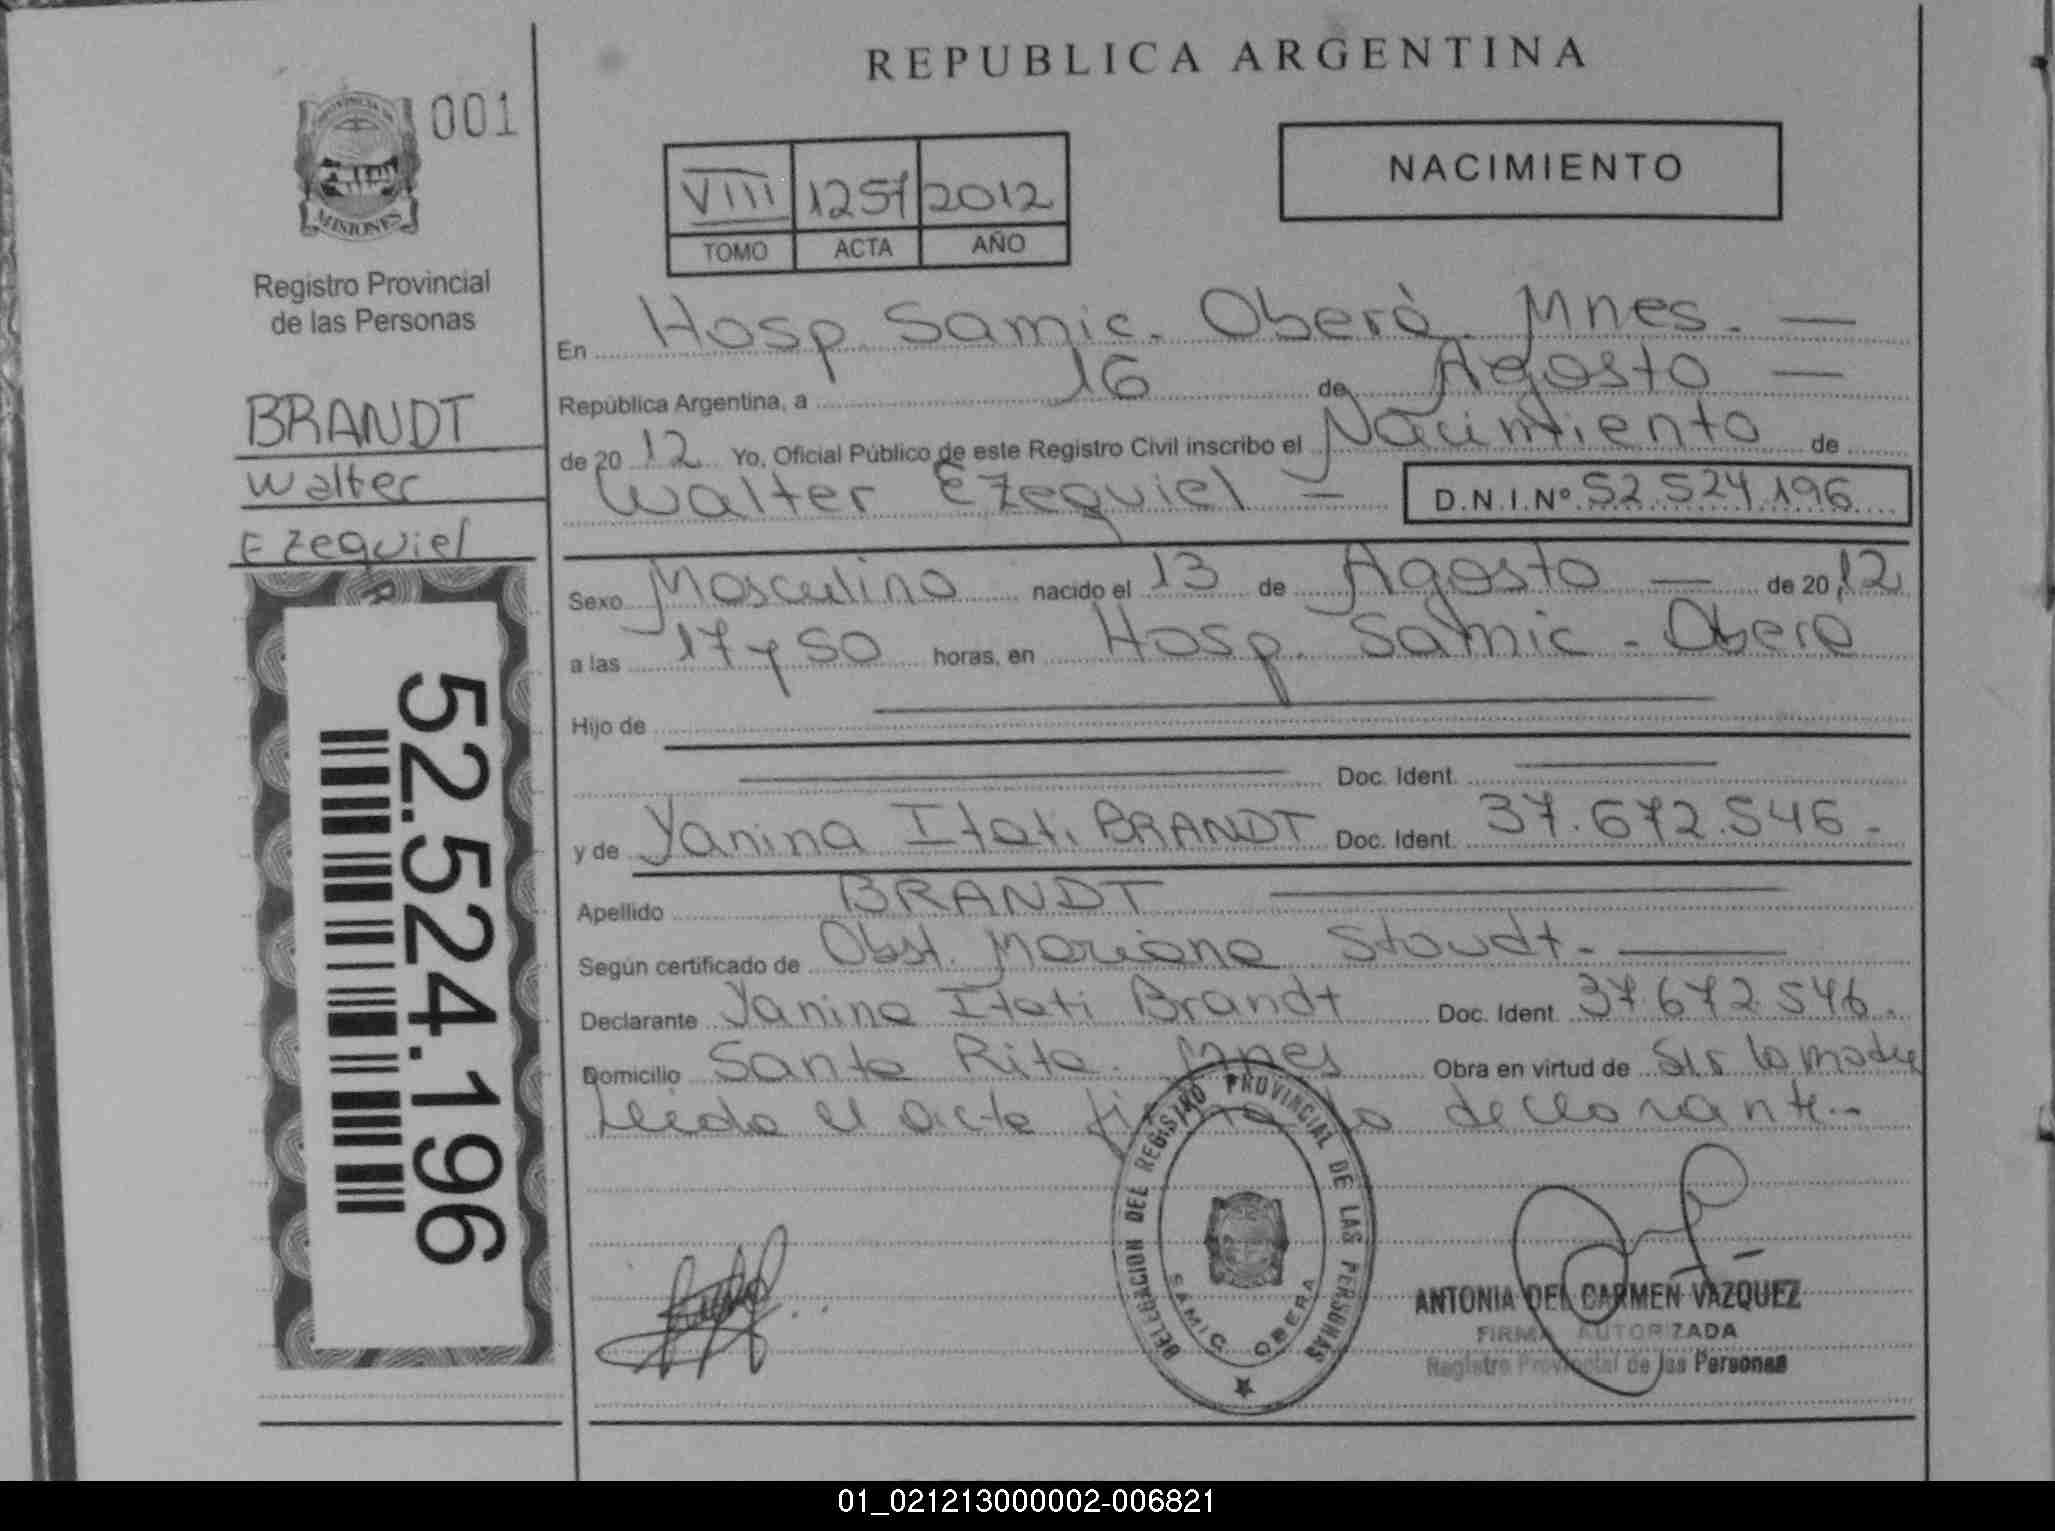 REPUBLICA ARGENTINA
PROVINCIA DE
MISIONES
001
Registro Provincial
de las Personas
BRANDT
Walter
Ezequiel
52.524.196
VIII 1251 2012
TOMO ACTA AÑO
NACIMIENTO
En Hosp. Samic. Oberá. Mnes. —
República Argentina, a 16 de Agosto —
de 2012 Yo, Oficial Público de este Registro Civil inscribo el Nacimiento de
Walter Ezequiel — D.N.I.Nº 52.524.196
Sexo Masculino nacido el 13 de Agosto — de 2012
a las 17 y 50 horas, en Hosp. Samic - Obera
Hijo de
Doc. Ident.
y de Yanina Itati BRANDT Doc. Ident. 37.672.546.-
Apellido BRANDT
Según certificado de Obst. Mariana Stoudt.-
Declarante Yanina Itati Brandt Doc. Ident. 37.672.546.
Domicilio Santa Rita. Mnes Obra en virtud de Ser la madre
Leida el acta firma la declarante.-
DELEGACION DEL REGISTRO PROVINCIAL DE LAS PERSONAS
SAMIC OBERA
ANTONIA DEL CARMEN VAZQUEZ
FIRMA AUTORIZADA
Registro Provincial de las Personas
01_021213000002-006821